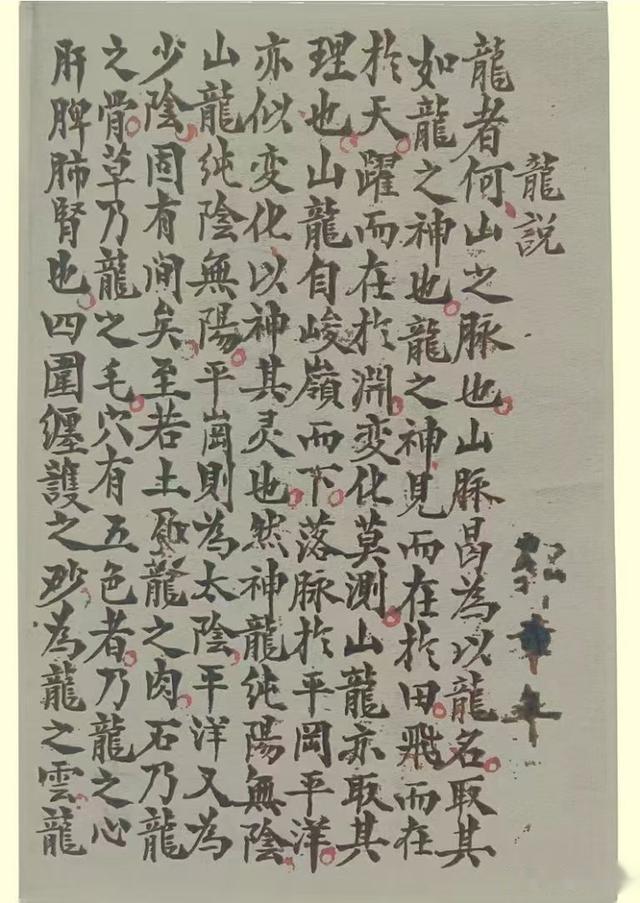 龍説
龍者何山之脉也山脈曷為以龍名取其
如龍之神也龍之神見而在於田飛而在
於天躍而在於淵變化莫測山龍亦取其
理也山龍自峻嶺而下落脈於平岡平洋
亦似变化以神其灵也然神龍純陽無陰
山龍純陰無陽平崗則為太陰平洋又為
少陰固有间矣至若土乃龍之肉石乃龍
之骨草乃龍之毛穴有五色者乃龍之心
肝脾肺腎也四圍纏護之砂為龍之雲龍